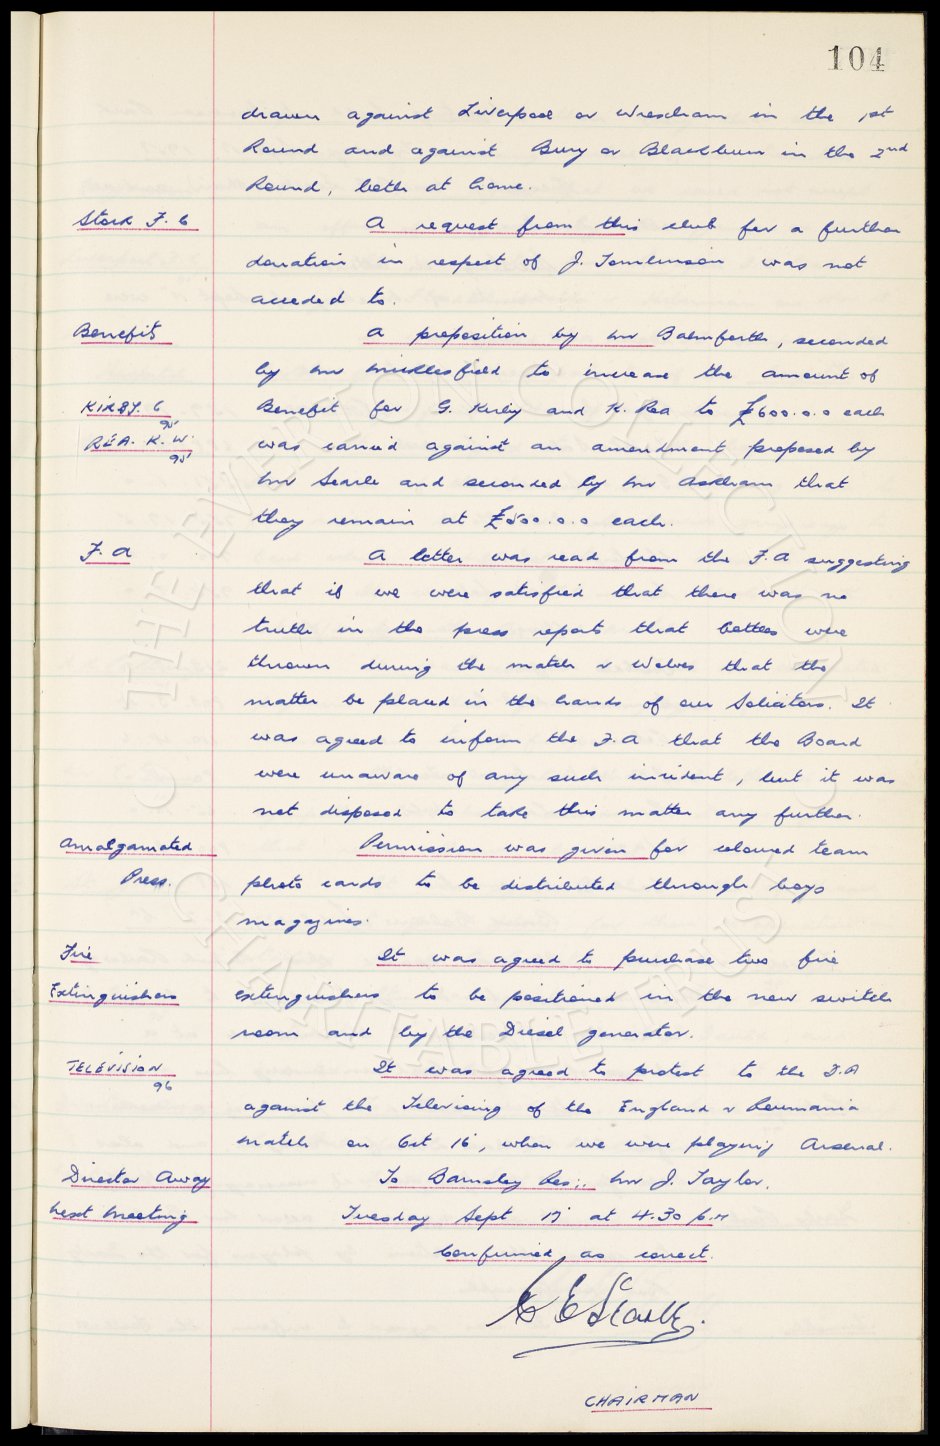 104
drawn against Liverpool or Wrexham in the 1st
Round and against Bury or Blackburn in the 2nd
Round, both at home.
Stork F.C A request from this club for a further
donation in respect of J. Tomlinson was not
acceded to.
Benefits A proposition by Mr Balmforth, seconded
by Mr Micklesfield to increase the amount of
KIRBY. G Benefit for G. Kirby and K. Rea to £600.0.0 each
95
REA. K.W. was carried against an amendment proposed by
95
Mr Searle and seconded by Mr Askham that
they remain at £500.0.0 each.
F.A A letter was read from the F.A suggesting
that if we were satisfied that there was no
truth in the press reports that bottles were
thrown during the match v Wolves that the
matter be placed in the hands of our Solicitors. It
was agreed to inform the F.A that the Board
were unaware of any such incident, but it was
not disposed to take this matter any further.
Amalgamated Permission was given for coloured team
Press. photo cards to be distributed through boys
magazines.
Fire It was agreed to purchase two fire
Extinguishers extinguishers to be positioned in the new switch
room and by the Diesel generator.
TELEVISION It was agreed to protest to the F.A
96
against the Televising of the England v Roumania
match on Oct 16, when we were playing Arsenal.
Director Away To Barnsley Res:. Mr J. Taylor.
Next Meeting Tuesday Sept 17 at 4.30 p.m
Confirmed as correct.
C E Searle.
CHAIRMAN
© THE EVERTON COLLECTION
CHARITABLE TRUST